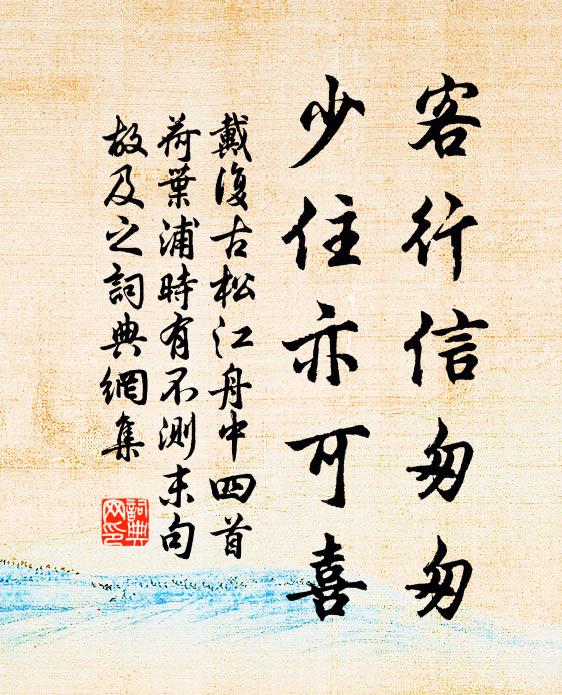 客行信匆匆
少住亦可喜
戴復古松江舟中四首
荷葉浦時有不測末句
故及之詞典網集
詞典
网印